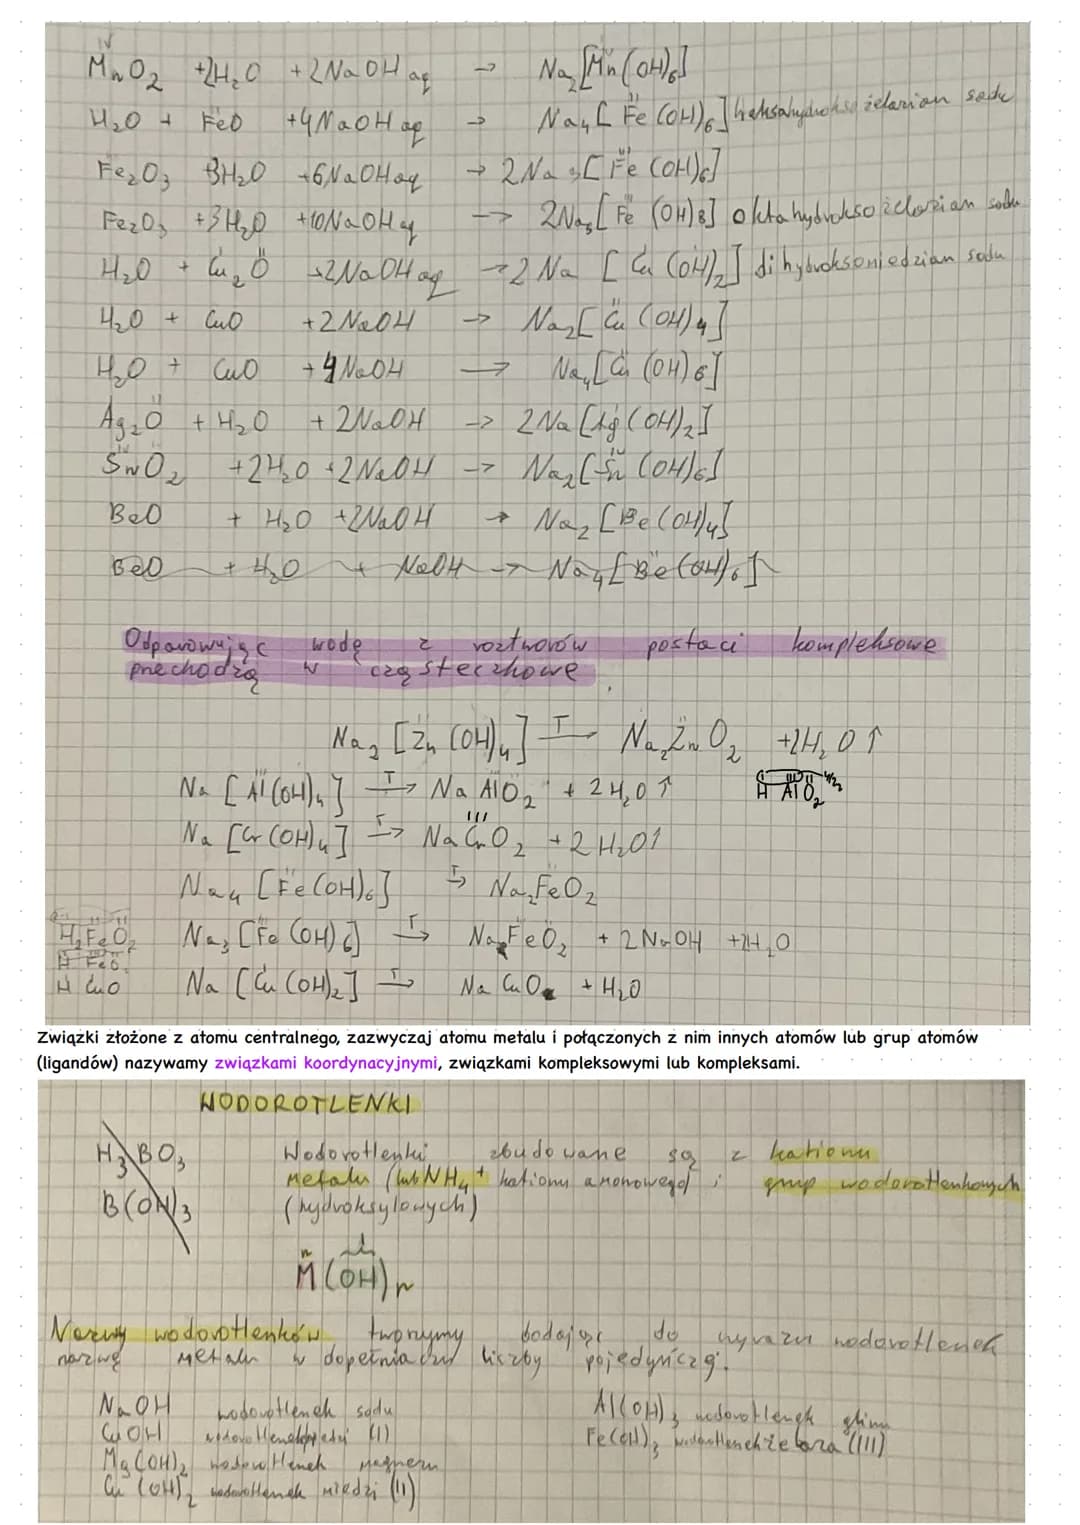 IV
MnO₂ +2H₂O +2NaOH aq → Na₂[Mn(OH)₆]
H₂O + FeO +4NaOH aq → Na₄[Fe(OH)₆] heksahydrokso żelazian sodu
Fe₂O₃ 3H₂O +6NaOH aq → 2Na₃[Fe(OH)₆]
Fe₂O₃ +3H₂O +10NaOH aq → 2Na₅[Fe(OH)₈] oktahydrokso żelazian sodu
H₂O + Cu₂O +2NaOH aq → 2Na[Cu(OH)₂] dihydroksomiedzian sodu
H₂O + CuO +2NaOH → Na₂[Cu(OH)₄]
H₂O + CuO +4NaOH → Na₄[Cu(OH)₆]
Ag₂O + H₂O + 2NaOH → 2Na[Ag(OH)₂]
SnO₂ +2H₂O +2NaOH → Na₂[Sn(OH)₆]
BeO + H₂O +2NaOH → Na₂[Be(OH)₄]
BeO + H₂O + NaOH → Na₄[Be(OH)₆]
Odparowując wodę z roztworów postaci kompleksowe
przechodzą w cząsteczkowe
Na₂[Zn(OH)₄] T→ Na₂ZnO₂ +2H₂O↑
Na[Al(OH)₄] T→ NaAlO₂ + 2H₂O↑ HAlO₂
Na[Cr(OH)₄] T→ NaCrO₂ + 2H₂O↑
Na₄[Fe(OH)₆] T→ Na₂FeO₂
H₂FeO₂ Na₃[Fe(OH)₆] T→ NaFeO₂ + 2NaOH +2H₂O
H FeO₂
H CuO Na[Cu(OH)₂] T→ NaCuO + H₂O
Związki złożone z atomu centralnego, zazwyczaj atomu metalu i połączonych z nim innych atomów lub grup atomów
(ligandów) nazywamy związkami koordynacyjnymi, związkami kompleksowymi lub kompleksami.
WODOROTLENKI
H₃BO₃ Wodorotlenki zbudowane są z kationu
metalu (lub NH₄⁺ kationu amonowego) i grup wodorotlenkowych
B(OH)₃ (hydroksylowych)
n I
M(OH)n
Nazwy wodorotlenków tworzymy dodając do wyrazu wodorotlenek
nazwę metalu w dopełniaczu liczby pojedynczej.
NaOH wodorotlenek sodu Al(OH)₃ wodorotlenek glinu
CuOH wodorotlenek miedzi (I) Fe(OH)₃ wodorotlenek żelaza (III)
Mg(OH)₂ wodorotlenek magnezu
Cu(OH)₂ wodorotlenek miedzi (II)